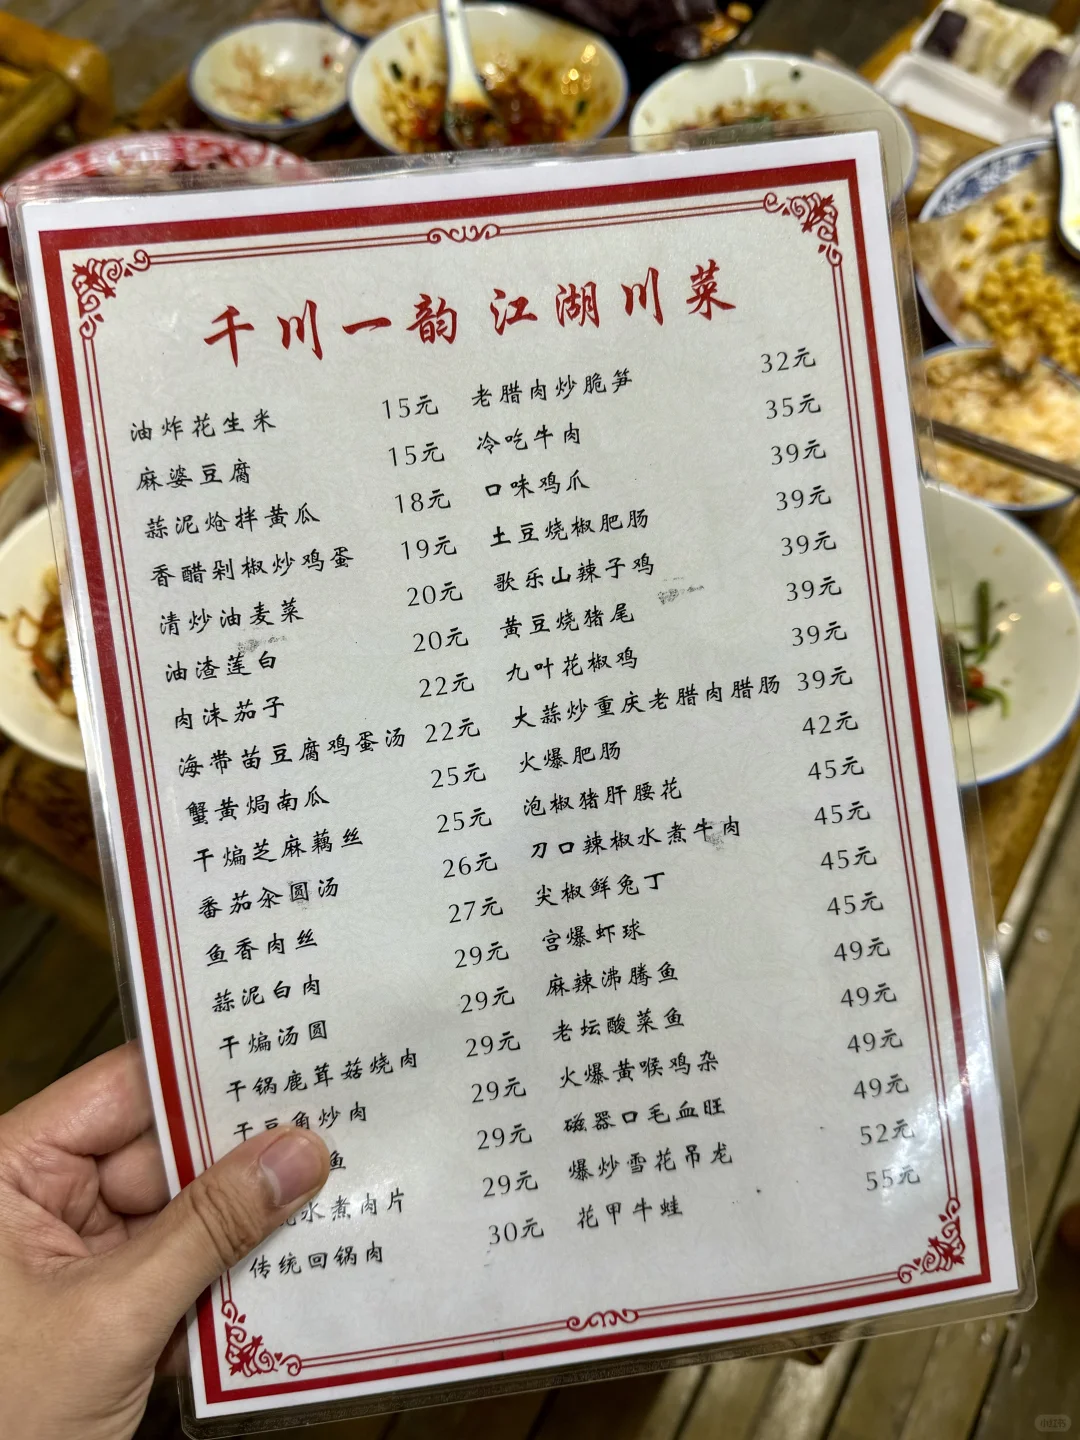 千川一韵 江湖川菜
油炸花生米 15元 老腊肉炒脆笋 32元
麻婆豆腐 15元 冷吃牛肉 35元
蒜泥炝拌黄瓜 18元 口味鸡爪 39元
香醋剁椒炒鸡蛋 19元 土豆烧椒肥肠 39元
清炒油麦菜 20元 歌乐山辣子鸡 39元
油渣莲白 20元 黄豆烧猪尾 39元
肉沫茄子 22元 九叶花椒鸡 39元
海带苗豆腐鸡蛋汤 22元 大蒜炒重庆老腊肉腊肠 39元
蟹黄焗南瓜 25元 火爆肥肠 42元
干煸芝麻藕丝 25元 泡椒猪肝腰花 45元
番茄汆圆汤 26元 刀口辣椒水煮牛肉 45元
鱼香肉丝 27元 尖椒鲜兔丁 45元
蒜泥白肉 29元 宫爆虾球 45元
干煸汤圆 29元 麻辣沸腾鱼 49元
干锅鹿茸菇烧肉 29元 老坛酸菜鱼 49元
干豆角炒肉 29元 火爆黄喉鸡杂 49元
鱼 29元 磁器口毛血旺 49元
水煮肉片 29元 爆炒雪花吊龙 52元
传统回锅肉 30元 花甲牛蛙 55元
小红书